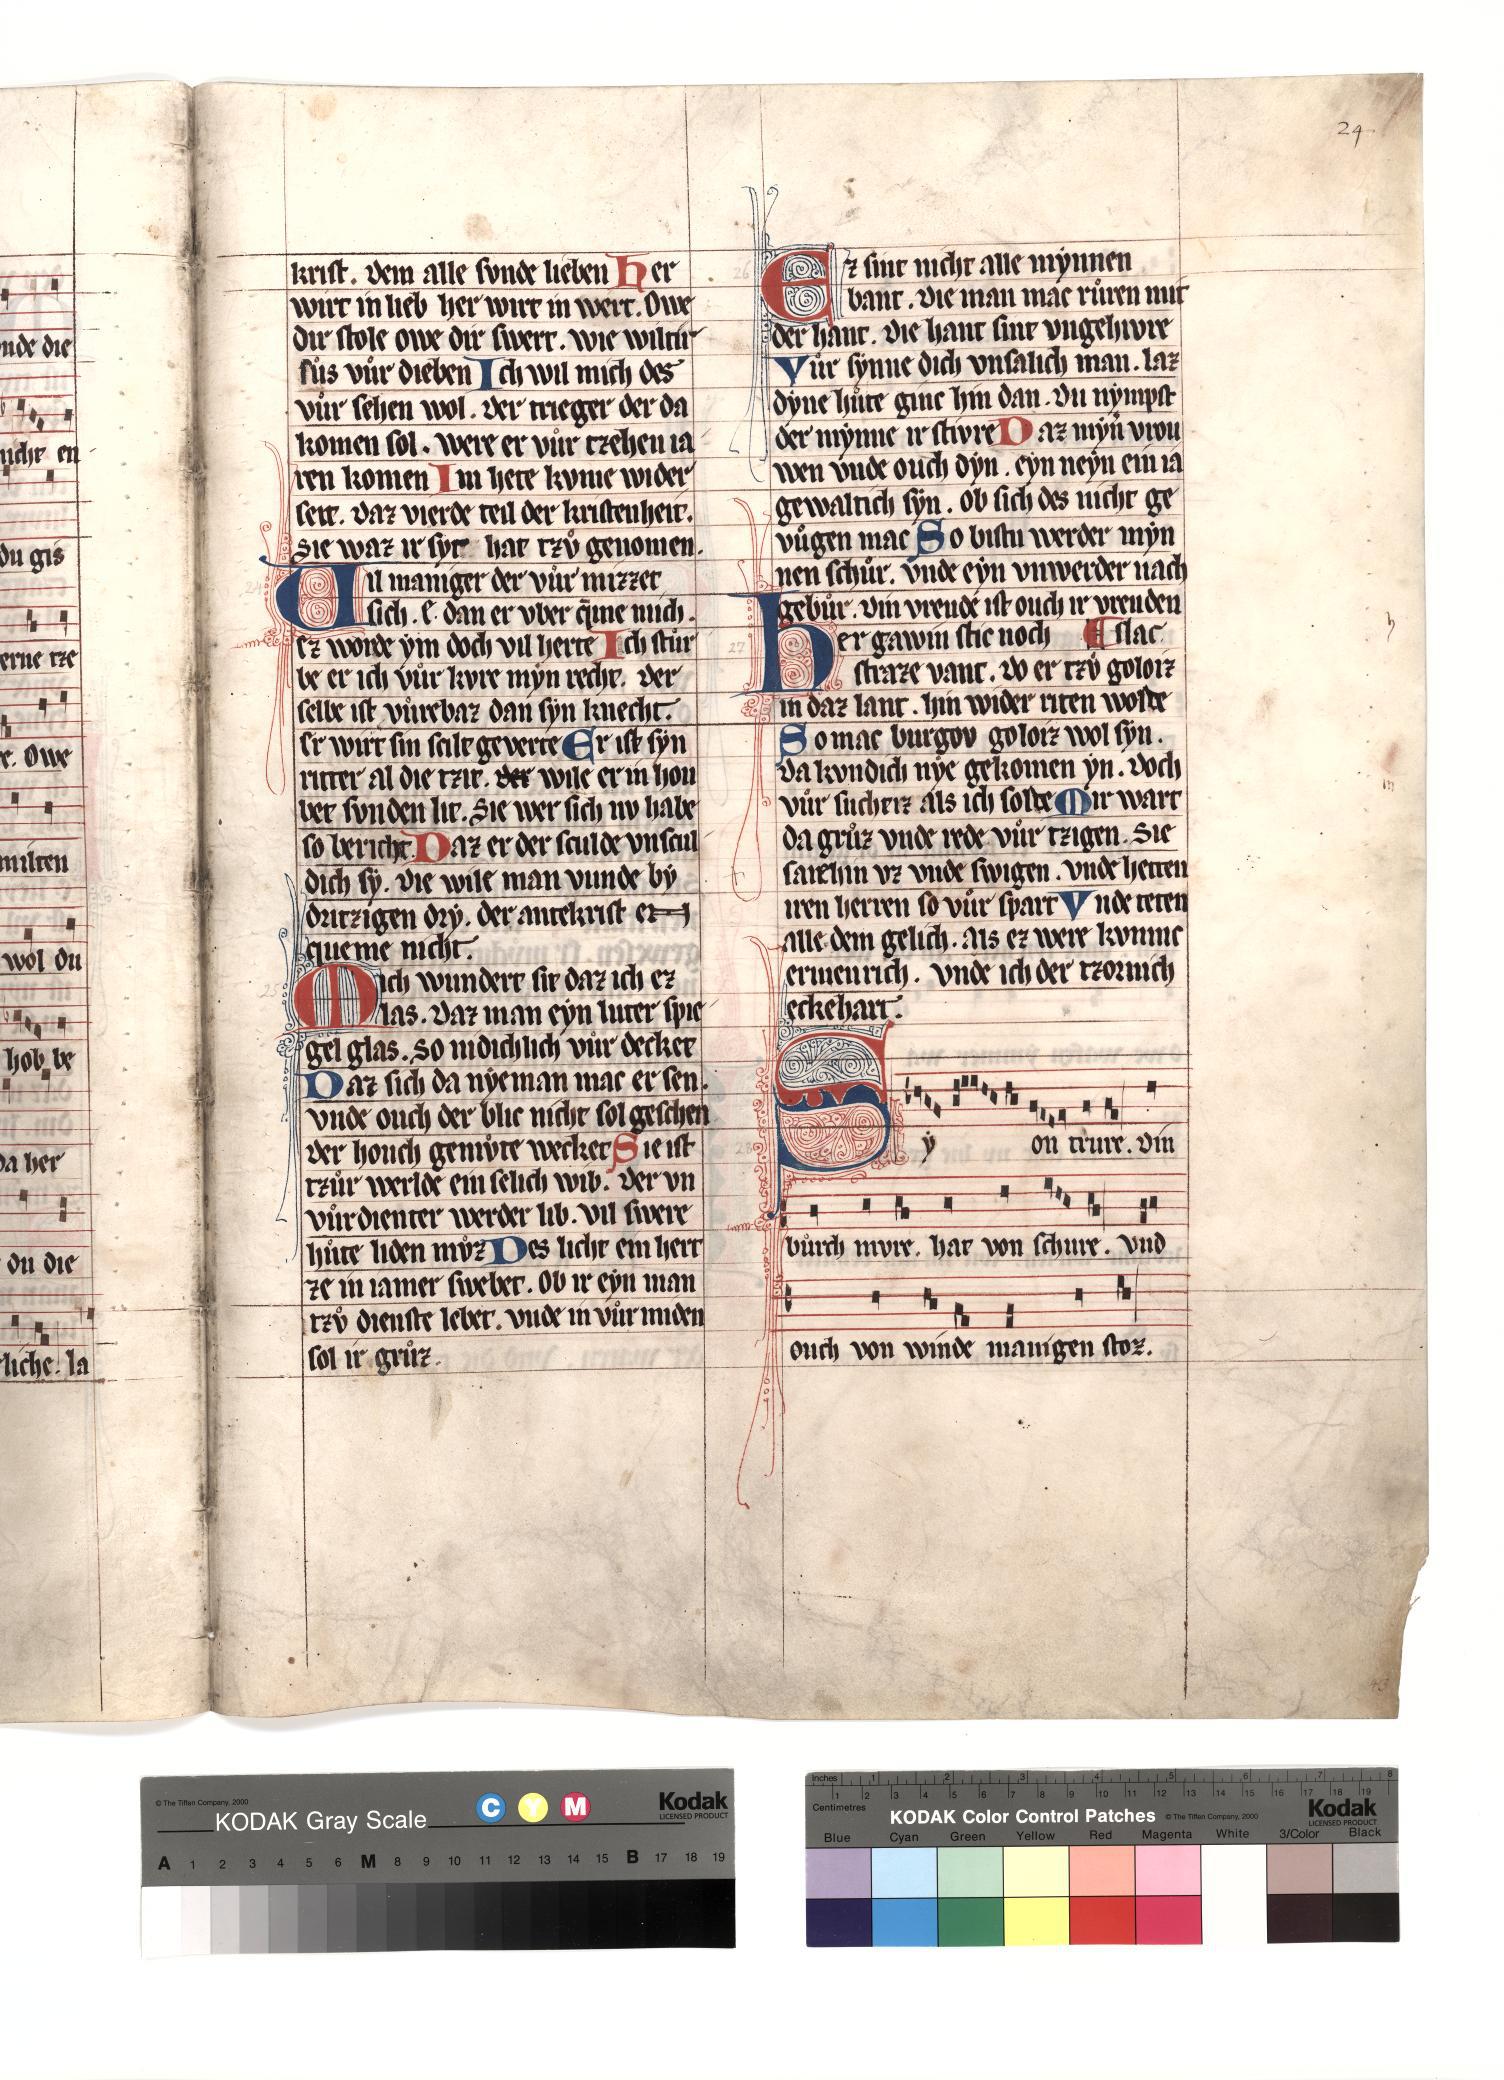 24
krist. dem alle sunde lieben Her
wirt in lieb her wirt in wert. Owe
dir stole owe dir swert. wie wiltu
sus vůr dieben Ich wil mich des
vůr sehen wol. der trieger der da
komen sol. were er vůr tzehen ia
ren komen Im hete kvme wider
seit. daz vierde teil der kristenheit.
Sie waz ir syt hat tzv̊ genomen.
Vil maniger der vůr mizzet
sich. e. dan er vber q̄me mich.
ez worde ym doch vil herte Ich stůr
be er ich vůr kvre myn recht. der
selbe ist vůrebaz dan syn knecht.
Er wirt sin scilt geverte Er ist syn
ritter al die tzit. der wile er in hou
bet svnden lit. Sie wer sich nv habe
so bericht Daz er der sculde vnscul
dich sy. die wile man vunde by
dritzigen dry. der antekrist er
queme nicht.
Mich wundert sit daz ich ez
las. daz man eyn luter spie
gel glas. so nidichlich vůr decket
Daz sich da nyeman mac er sen.
vnde ouch der blic nicht sol geschen
der houch gemůte wecket Sie ist
tzůr werlde ein selich wib. der vn
vůrdienter werder lib. vil swere
hůte liden mv̊z Des licht ein hert
ze in iamer swebet. Ob ir eyn man
tzv̊ dienste lebet. vnde in vůr miden
sol ir grůz.
Ez sint nicht alle mynnen
bant. die man mac růren mit
der hant. die hant sint vngehivre
Vůr synne dich vnsalich man. laz
dyne hůte ginc hin dan. du nympst
der mynne ir stivre Daz myn vrou
wen vnde ouch dyn. eyn neyn ein ia
gewaltich syn. ob sich des nicht ge
vůgen mac So bistu werder myn
nen schůr. vnde eyn vnwerder nach
gebůr. din vreude ist ouch ir vreuden
Her gawin stic noch slac
straze vant. do er tzv̊ goloiz
in daz lant. hin wider riten wolde
So mac burgov goloiz wol syn.
da kvndich nye gekomen yn. doch
vůr sucherz als ich solde Mir wart
da grůz vnde rede vůr tzigen. Sie
satzhin vz vnde swigen. vnde hetten
iren herren so vůr spart Vnde teten
alle dem gelich. als ez were kvninc
ermenrich. vnde ich der tzornich
eckehart.
Sy on tiure. din
bůrch mvre. hat von schure. vnd
ouch von winde manigen stoz.
© The Tiffen Company, 2000
KODAK Gray Scale
C Y M
Kodak
LICENSED PRODUCT
A 1 2 3 4 5 6 M 8 9 10 11 12 13 14 15 B 17 18 19
Inches 1 2 3 4 5 6 7 8
Centimetres 1 2 3 4 5 6 7 8 9 10 11 12 13 14 15 16 17 18 19
KODAK Color Control Patches © The Tiffen Company, 2000
Kodak
LICENSED PRODUCT
Blue Cyan Green Yellow Red Magenta White 3/Color Black